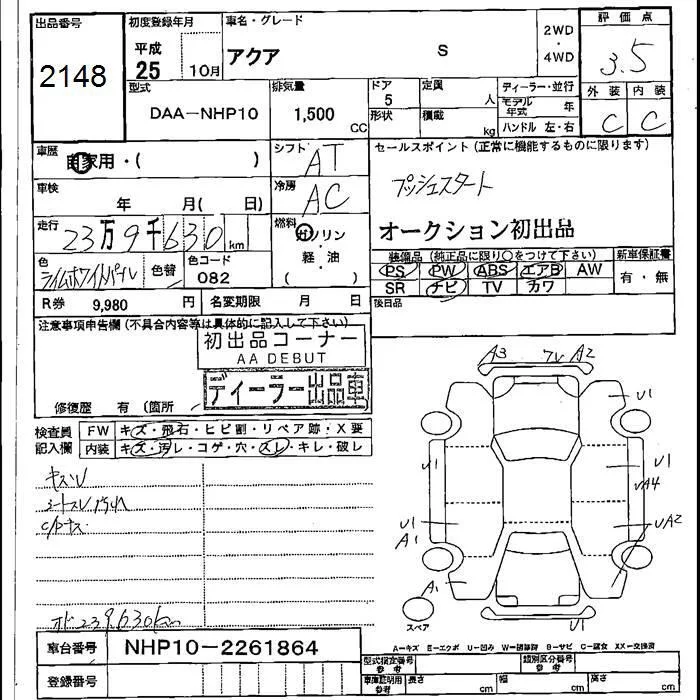 出品番号
2148
初度登録年月
平成
25 10月
車名・グレード
アクア S
2WD
・
4WD
評価点
3.5
外装 内装
C C
型式
DAA-NHP10
排気量
1,500
CC
ドア
5
形状
定員
人
積載
kg
ディーラー・並行
モデル
年式 年
ハンドル 左・右
車歴
自家用・( )
シフト
AT
セールスポイント(正常に機能するものに限ります)
プッシュスタート
オークション初出品
車検
年 月( 日)
冷房
AC
走行
23万9千630km
燃料
ガソリン
・
軽・油
( )
色
ライムホワイトパール
色替
色コード
082
装備品(純正品に限り○をつけて下さい)
新車保証書
PS PW ABS エアB AW
SR ナビ TV カワ
有・無
R券 9,980 円
名変期限 月 日
後日品
注意事項申告欄(不具合内容等は具体的に記入して下さい)
初出品コーナー
AA DEBUT
ディーラー出品車
修復歴 有(箇所
検査員
記入欄
FW キズ・飛石・ヒビ割・リペア跡・X要
内装 キズ・汚レ・コゲ・穴・スレ・キレ・破レ
キズU
シートスレ汚れ
C/Pキズ
オド239,630km
A3 フU A2
U1
U1
U1
UA4
U1
A1
UA2
A1
U1
スペア
A-キズ E-エクボ U-凹み W-補修跡 S-サビ C-腐食 XX-交換済
車台番号
NHP10-2261864
登録番号
型式指定番号
参考
類別区分番号
参考
車庫証明用
参考
長さ cm
幅 cm
高さ cm